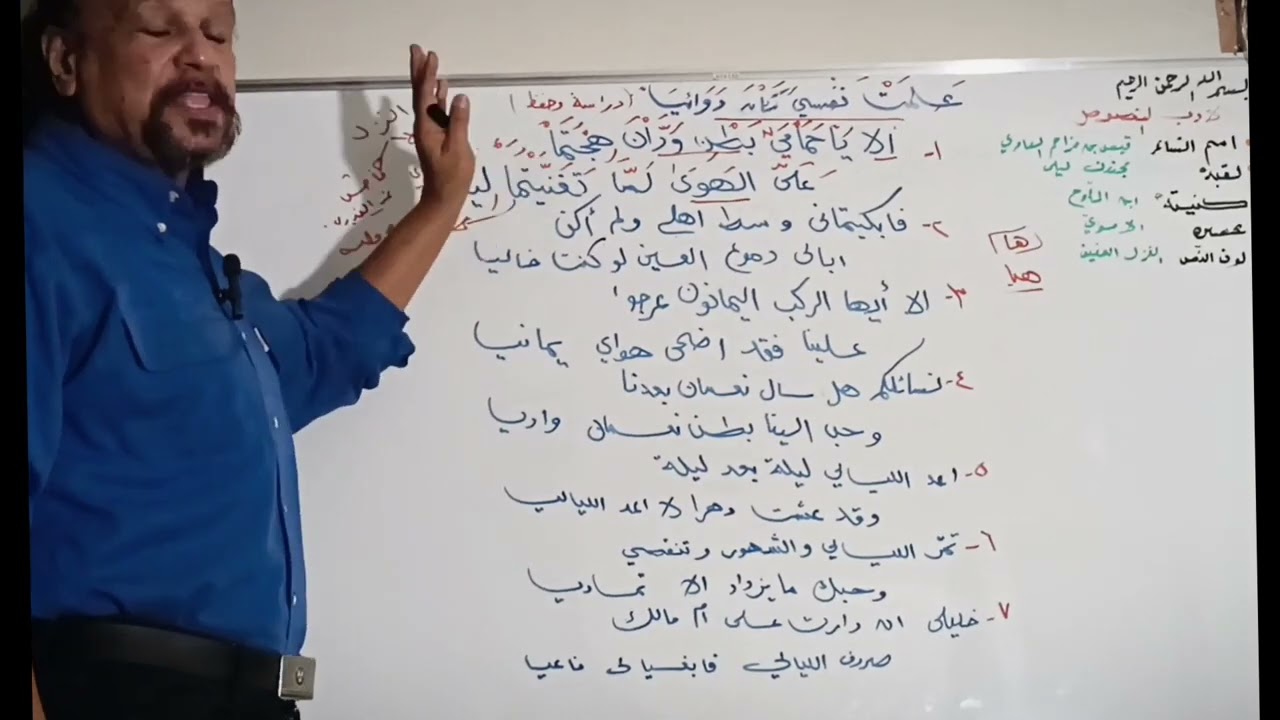 بسم الله الرحمن الرحيم
اسم الشاعر قيس بن مزاحم العامري
لقبه مجنون ليلى
كنيته ابن الملوح
عصره الاموي
لون النص الغزل العفيف
علمت نفسي دوائيا (دراسة وحفظ)
١- ألا يا حمامي بطن ودان هجتما
على الهوى لما تغنيتما
٢- فابكيتماني وسط اهلي ولم أكن
ابالي دموع العين لو كنت خاليا
٣- الا أيها الركب اليمانون عرجوا
علينا فقد اضحى هواي يمانيا
٤- نسائلكم هل سال نعمان بعدنا
وحب الينا بطن نعمان واديا
٥- اعد الليالي ليلة بعد ليلة
وقد عشت دهرا لا اعد الليالي
٦- تمر الليالي والشهور وتنقضي
وحبك ما يزداد الا تماديا
٧- خليلي ان دارت على أم مالك
صروف الليالي فابغيا لي ناعيا
ها
هبا